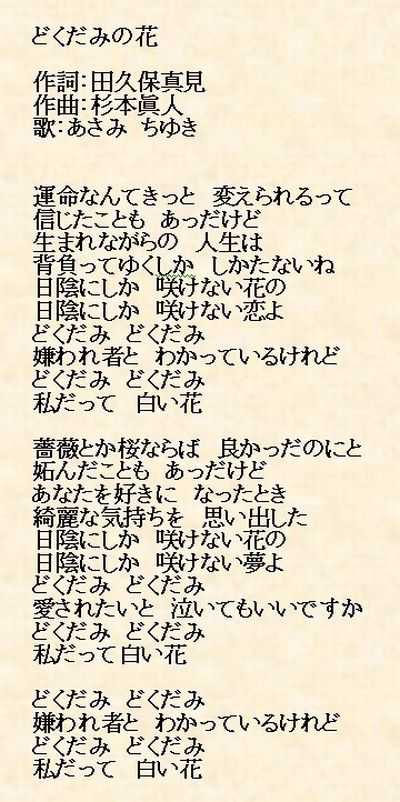 どくだみの花
作詞：田久保真見
作曲：杉本眞人
歌：あさみ　ちゆき
運命なんてきっと　変えられるって
信じたことも　あっだけど
生まれながらの　人生は
背負ってゆくしか　しかたないね
日陰にしか　咲けない花の
日陰にしか　咲けない恋よ
どくだみ　どくだみ
嫌われ者と　わかっているけれど
どくだみ　どくだみ
私だって　白い花
薔薇とか桜ならば　良かっだのにと
妬んだことも　あっだけど
あなたを好きに　なったとき
綺麗な気持ちを　思い出した
日陰にしか　咲けない花の
日陰にしか　咲けない夢よ
どくだみ　どくだみ
愛されたいと　泣いてもいいですか
どくだみ　どくだみ
私だって 白い花
どくだみ　どくだみ
嫌われ者と　わかっているけれど
どくだみ　どくだみ
私だって　白い花